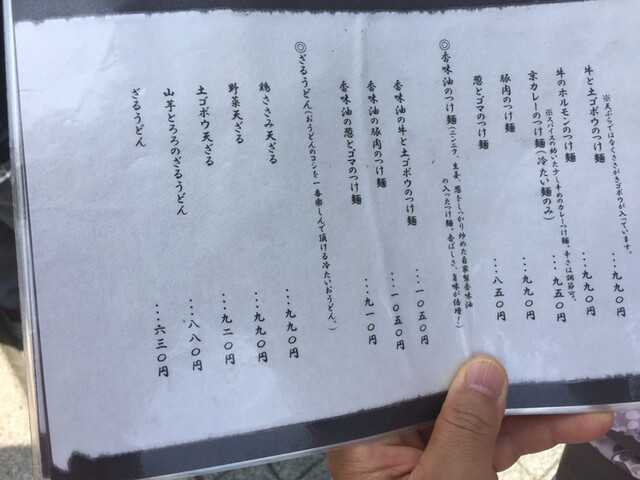 ※天ぷらではなくささがきゴボウが入っています。
牛と土ゴボウのつけ麺 …九九〇円
牛のホルモンのつけ麺 …九九〇円
※スパイスの効いた少し辛めのカレーつけ麺、辛さは調節可。
京カレーのつけ麺(冷たい麺のみ) …九五〇円
豚肉のつけ麺 …九九〇円
葱とゴマのつけ麺 …八五〇円
◎香味油のつけ麺(ニンニク、生姜、葱をしっかり炒めた自家製香味油
の入ったつけ麺、香ばしさ、旨味が倍増!)
香味油の牛と土ゴボウのつけ麺 …一〇五〇円
香味油の豚肉のつけ麺 …一〇五〇円
香味油の葱とゴマのつけ麺 …九一〇円
◎ざるうどん(おうどんのコシを一番楽しんで頂ける冷たいおうどん。)
鶏ささみ天ざる …九九〇円
野菜天ざる …九九〇円
土ゴボウ天ざる …九二〇円
山芋とろろのざるうどん …八八〇円
ざるうどん …六三〇円